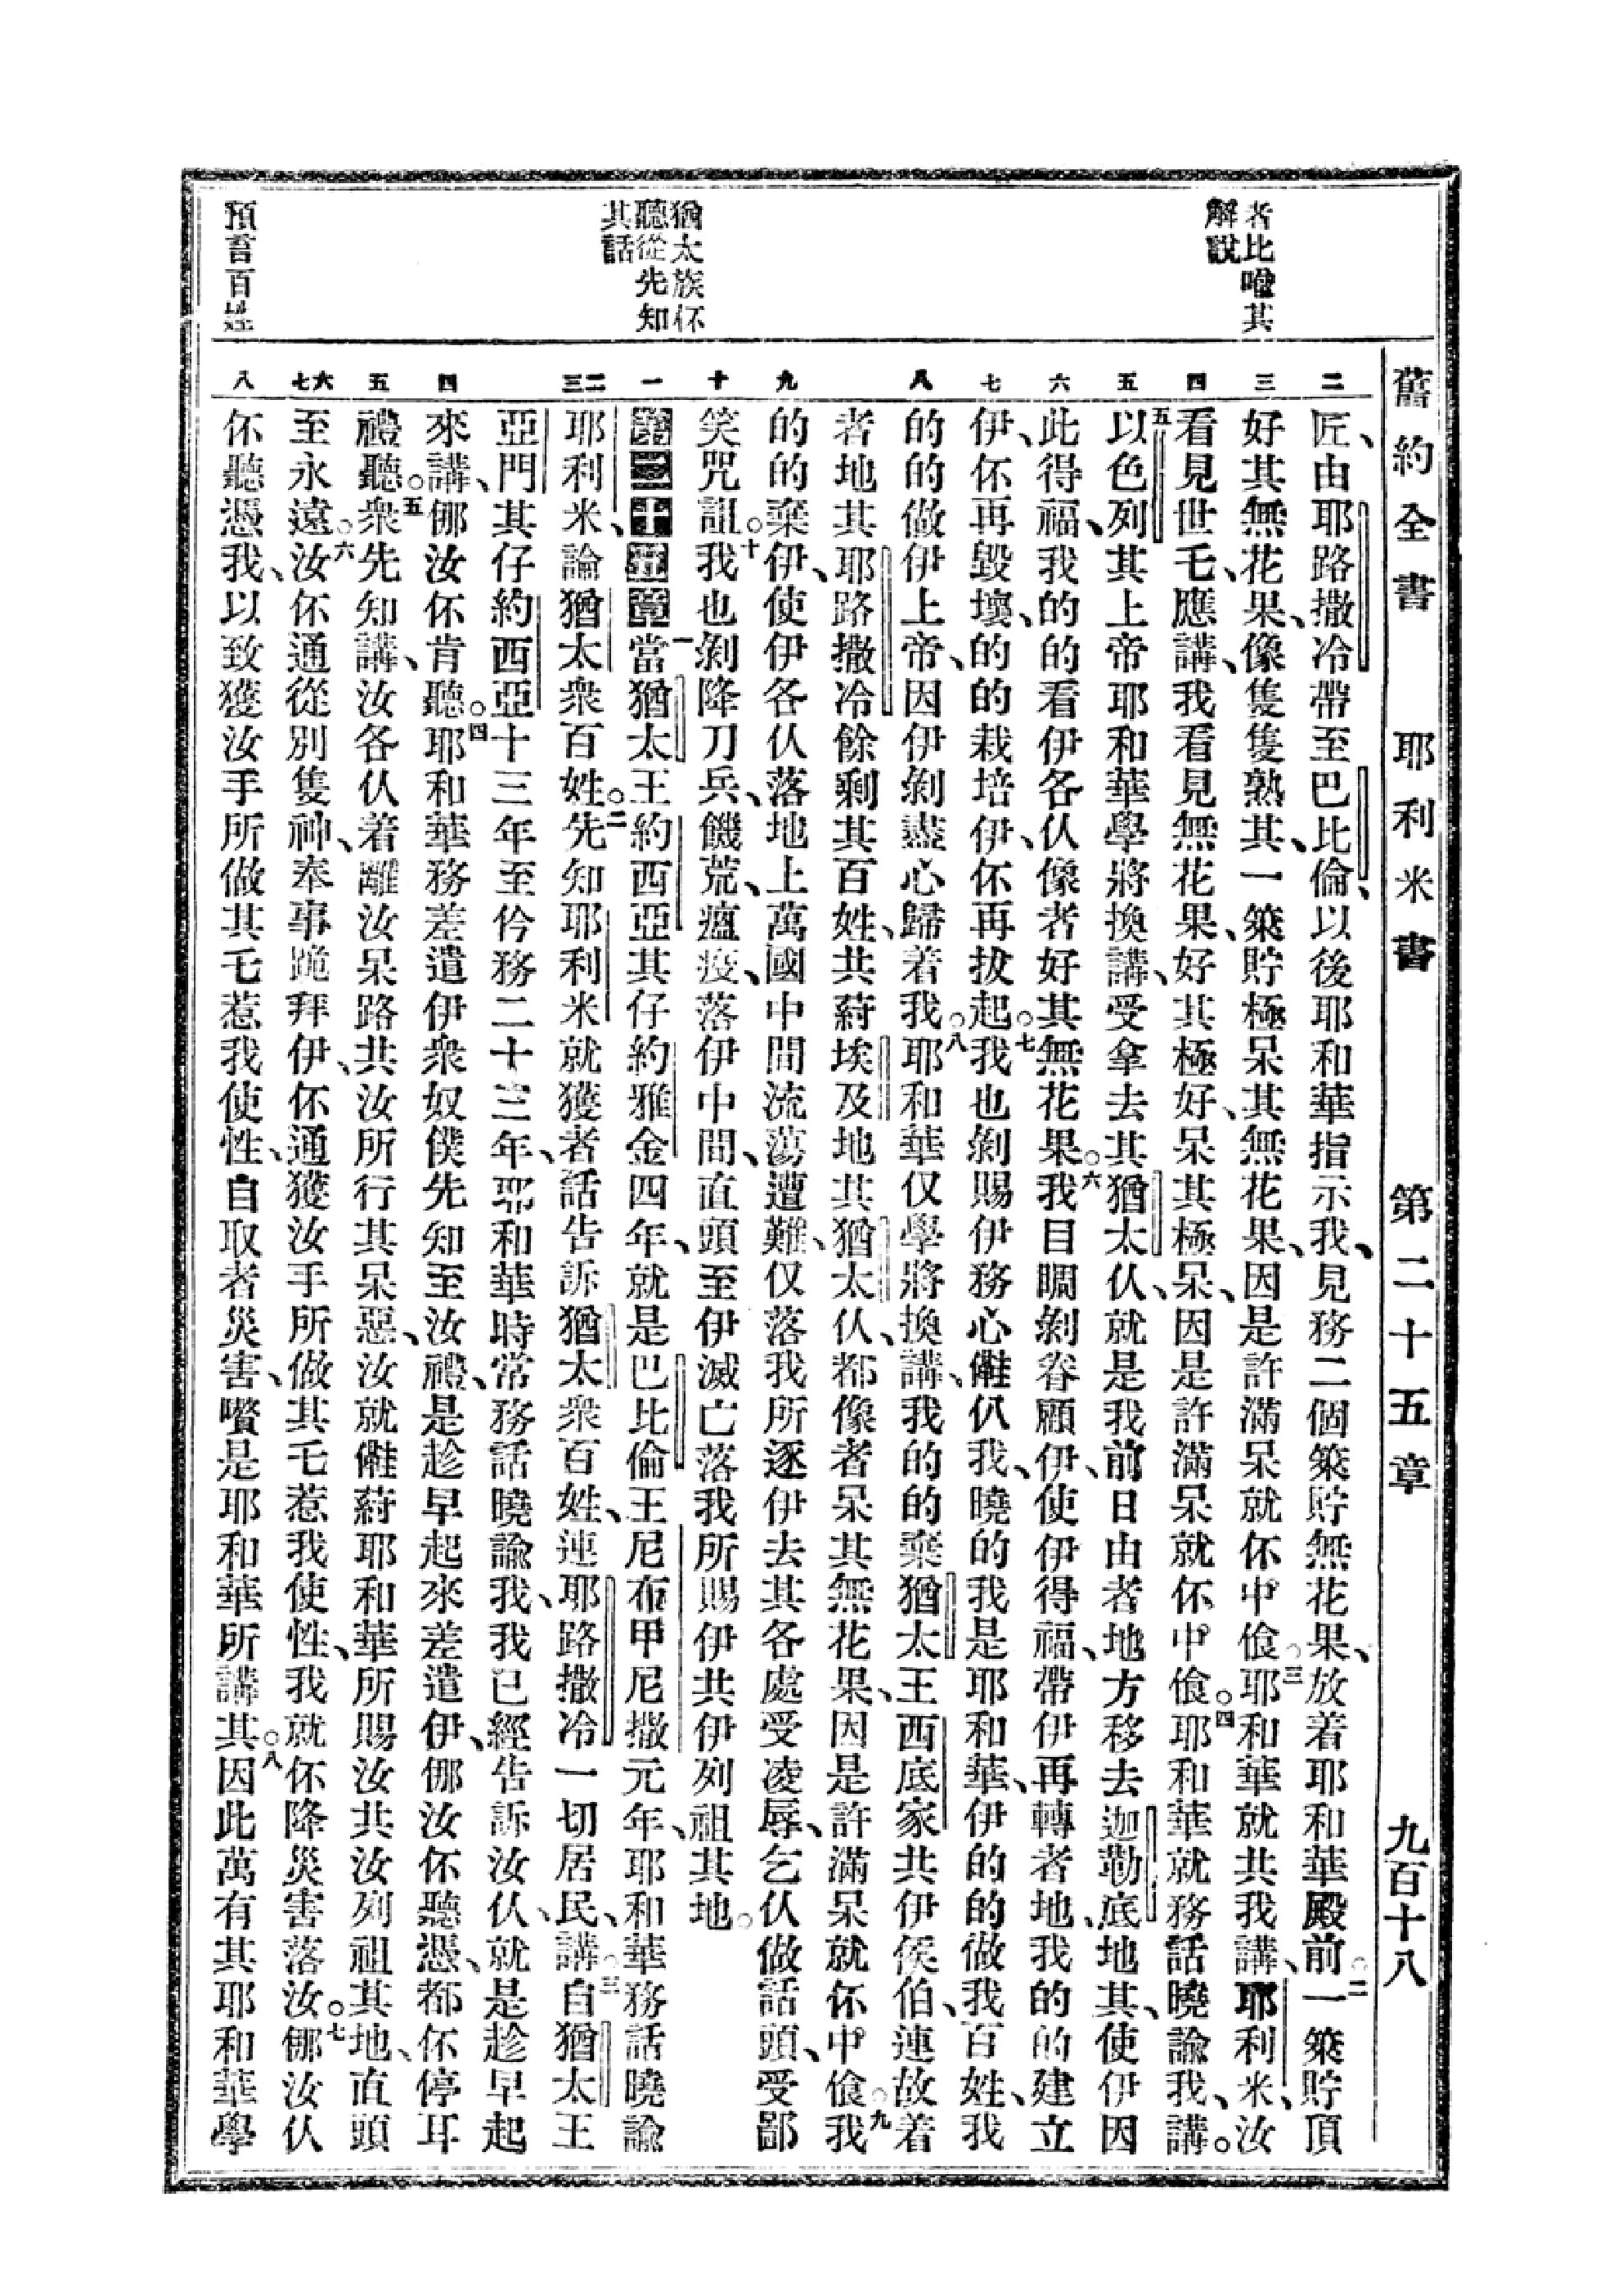 舊約全書 耶利米書 第二十五章 九百十八
者比喻其
解說
猶太族伓
聽從先知
其話
預言百姓
二
匠、由耶路撒冷帶至巴比倫、以後耶和華指示我、見務二個簗貯無花果、放着耶和華殿前○二一簗貯頂
三
好其無花果、像隻隻熟其、一簗貯極呆其無花果、因是許滿呆就伓中食○三耶和華就共我講、耶利米、汝
四
看見世乇、應講、我看見無花果、好其極好、呆其極呆、因是許滿呆就伓中食○四耶和華就務話曉諭我、講。
五
五以色列其上帝耶和華學將換講、受拿去其猶太仈、就是我前日由者地方移去迦勒底地其、使伊因
六
此得福、我的的看伊各仈像者好其無花果○六我目睭剝眷顧伊、使伊得福、帶伊再轉者地、我的的建立
七
伊、伓再毀壞、的的栽培伊、伓再拔起○七我也剝賜伊務心、僅仈我、曉的我是耶和華、伊的的做我百姓、我
八
的的做伊上帝、因伊剝盡心歸着我○八耶和華仅學將換講、我的的棄猶太王西底家共伊侯伯、連故着
者地其耶路撒冷餘剩其百姓、共蒔埃及地其猶太仈、都像者呆其無花果、因是許滿呆就伓中食○九我
九
的的棄伊、使伊各仈落地上萬國中間流蕩遭難、仅落我所逐伊去其各處受凌辱、乞仈做話頭、受鄙
十
笑咒詛○十我也剝降刀兵、饑荒、瘟疫、落伊中間、直頭至伊滅亡落我所賜伊共伊列祖其地○
一
第二十五章 一當猶太王約西亞其仔約雅金四年、就是巴比倫王尼布甲尼撒元年、耶和華務話曉諭
二三
耶利米、論猶太衆百姓○二先知耶利米就獲者話告訴猶太衆百姓、連耶路撒冷一切居民、講○三自猶太王
亞門其仔約西亞十三年至伶務二十三年、耶和華時常務話曉諭我、我已經告訴汝仈、就是趁早起
四
來講、㑚汝伓肯聽○四耶和華務差遣伊衆奴僕先知至汝禮、是趁早起來差遣伊、㑚汝伓聽憑、都伓停耳
五
禮聽○五衆先知講、汝各仈着離汝呆路共汝所行其呆惡、汝就僅蒔耶和華所賜汝共汝列祖其地、直頭
六七
至永遠○六汝伓通從別隻神、奉事跪拜伊、伓通獲汝手所做其乇惹我使性、我就伓降災害落汝○七㑚汝仈
八
伓聽憑我、以致獲汝手所做其乇惹我使性、自取者災害、嚽是耶和華所講其○八因此萬有其耶和華學